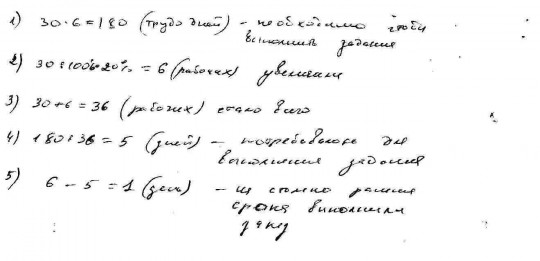 1) 30·6=180 (трудо дней) – необходимо чтобы
выполнить задание
2) 30:100%·20% = 6 (рабочих) увеличили
3) 30+6=36 (рабочих) стало всего
4) 180:36 = 5 (дней) – потребовалось для
выполнения задания
5) 6 – 5 = 1 (день) – на столько раньше
срока выполнили